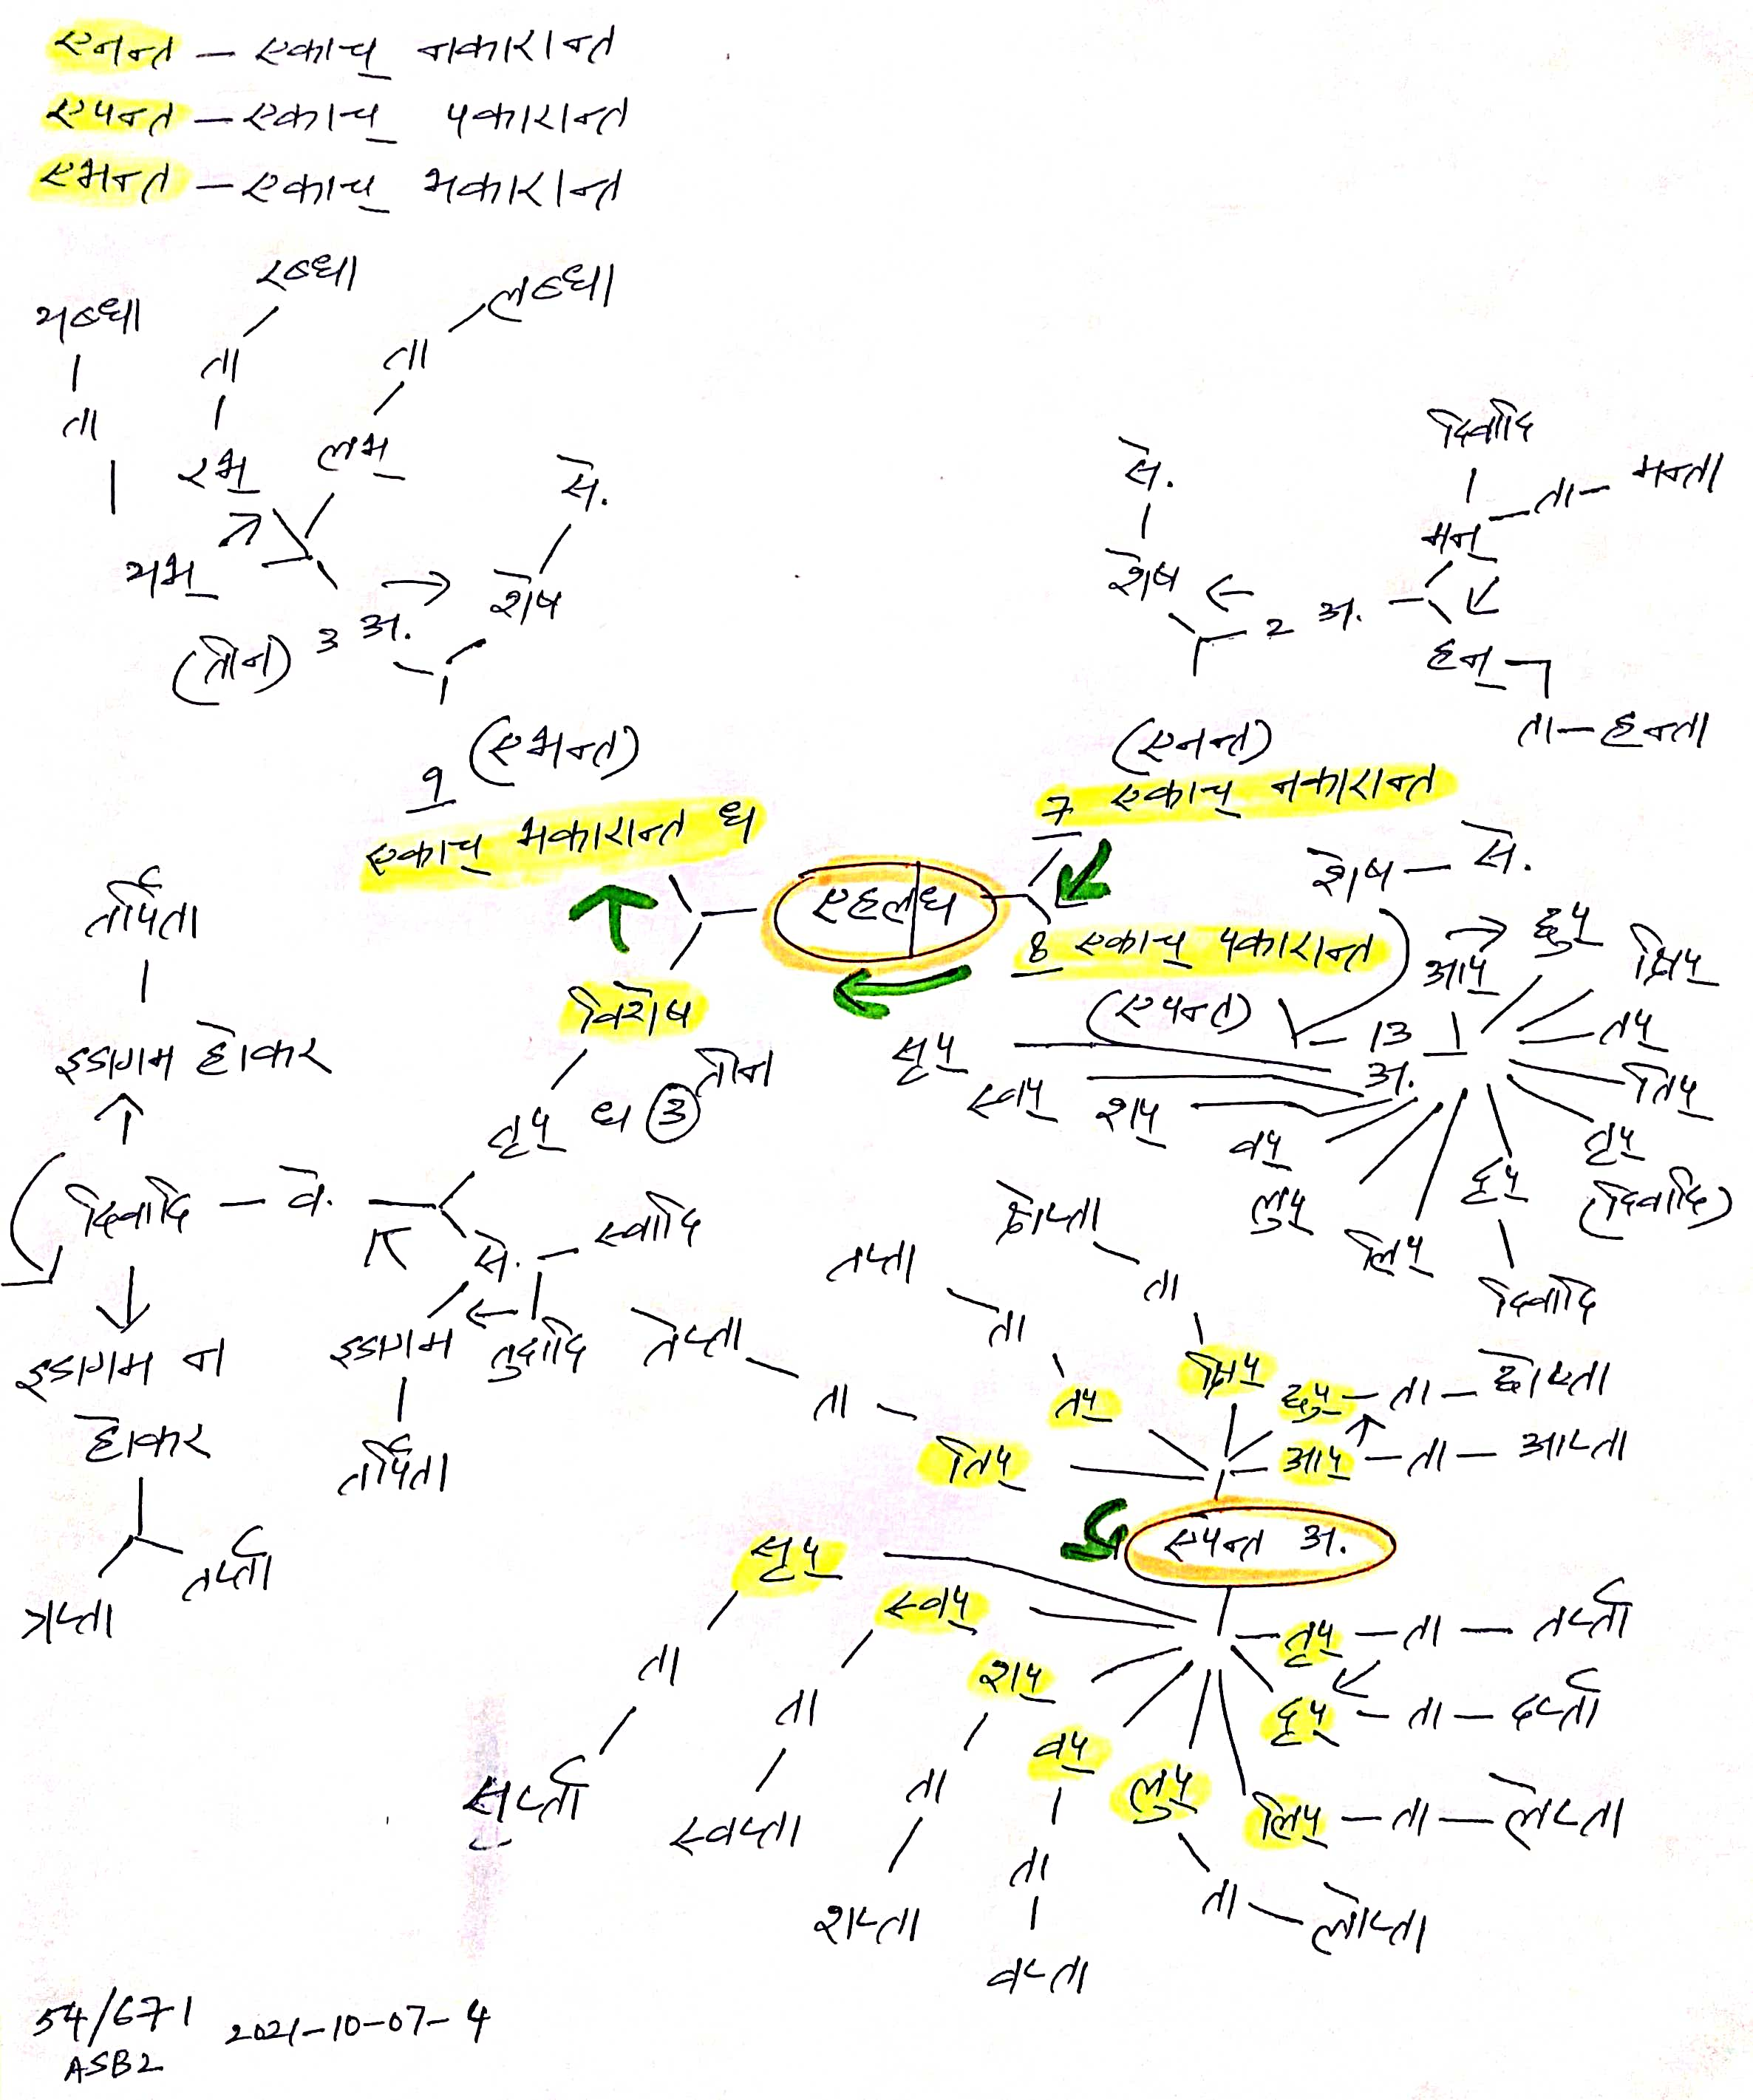 एनन्त – एकाच् नकारान्त
एपन्त – एकाच् पकारान्त
एभन्त – एकाच् भकारान्त
यब्धा
ता
यभ्
रब्धा
ता
रभ्
लब्धा
ता
लभ्
(तीन) 3 अ.
शेष
से.
(एभन्त)
9
एकाच् भकारान्त धा
से.
शेष
2 अ.
दिवादि
मन् – ता – मन्ता
हन्
ता – हन्ता
(एनन्त)
7 एकाच् नकारान्त
एहलधा
8 एकाच् पकारान्त
(एपन्त)
शेष – से.
13 अ.
आप्
छुप्
क्षिप्
तप्
तिप्
तृप्
(दिवादि)
दृप्
दिवादि
लिप्
लुप्
वप्
शप्
स्वप्
सृप्
विशेष
तृप् धा 3 तीन
वे. – दिवादि
से. – स्वादि
तुदादि
इडागम
तर्पिता
तर्पिता
इडागम होकर
इडागम न
होकर
त्रप्ता
तर्प्ता
एपन्त अ.
आप् – ता – आप्ता
छुप् – ता – छोप्ता
क्षिप्
ता
क्षेप्ता
तप्
ता
तप्ता
तिप्
ता
तेप्ता
तृप् – ता – तर्प्ता
दृप् – ता – दर्प्ता
लिप् – ता – लेप्ता
लुप्
ता – लोप्ता
वप्
ता
वप्ता
शप्
ता
शप्ता
स्वप्
ता
स्वप्ता
सृप्
ता
सर्प्ता
54/671 2021-10-07-4
ASB2